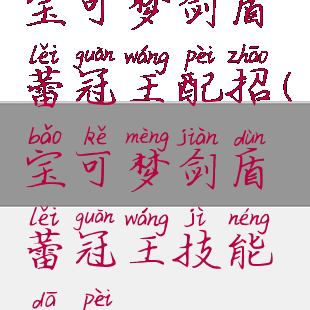 宝可梦剑盾
lěi guān wáng pèi zhāo
蕾冠王配招(
bǎo kě mèng jiàn dùn
宝可梦剑盾
lěi guān wáng jì néng
蕾冠王技能
dā pèi